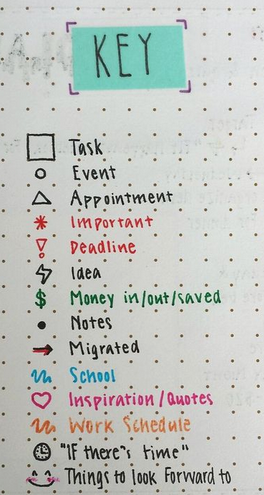 KEY
Task
Event
Appointment
Important
Deadline
Idea
$ Money in/out/saved
Notes
Migrated
School
Inspiration/Quotes
Work Schedule
"IF there's time"
Things to look Forward to